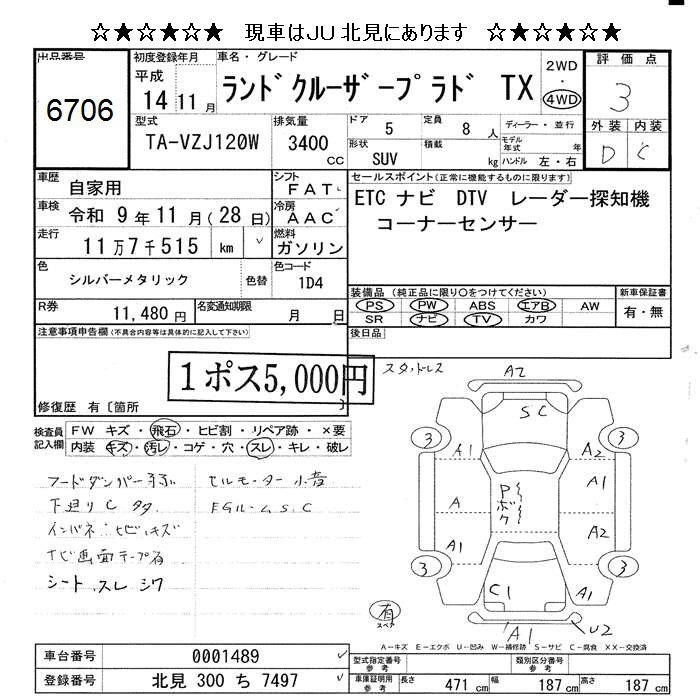 ☆★☆★☆★ 現車はJU北見にあります ☆★☆★☆★
出品番号
6706
初度登録年月
平成
14 11 月
車名・グレード
ランドクルーザープラド TX
2WD
・
4WD
評価点
3
外装 内装
D C
型式
TA-VZJ120W
排気量
3400
cc
ドア 5
定員 8 人
ディーラー・並行
形状
SUV
積載
kg
モデル年式 年
ハンドル 左・右
車歴 自家用
シフト
FAT
車検 令和 9 年 11 月 ( 28 日)
冷房
AAC
走行 11 万 7 千 515 km
燃料
ガソリン
色
シルバーメタリック
色替
色コード
1D4
R券
11,480 円
名変通知期限
月 日
セールスポイント(正常に機能するものに限ります)
ETC ナビ DTV レーダー探知機
コーナーセンサー
装備品 (純正品に限り○をつけてください)
PS PW ABS エアB AW
SR ナビ TV カワ
新車保証書
有・無
後日品
注意事項申告欄(不具合内容等は具体的に記入して下さい)
1ポス5,000円
修復歴 有〔箇所
検査員記入欄
FW キズ・飛石・ヒビ割・リペア跡・×要
内装 キズ・汚レ・コゲ・穴・スレ・キレ・破レ
フードダンパー
下廻りC
インパネ ヒビ キズ
ナビ画面テープ有
シート、スレ シワ
セルモーター 小音
EGルーム S、C
スタッドレス
A2
SC
3
3
A1
A2
A
A1
A1
A2
Pボク
3
3
A1
A
C1
有
スペア
A1
U2
A－キズ E－エクボ U－凹み W－補修跡 S－サビ C－腐食 XX－交換済
車台番号 0001489
登録番号 北見 300 ち 7497
型式指定番号
参考
類別区分番号
参考
車庫証明用
参考
長さ 471 cm
幅 187 cm
高さ 187 cm